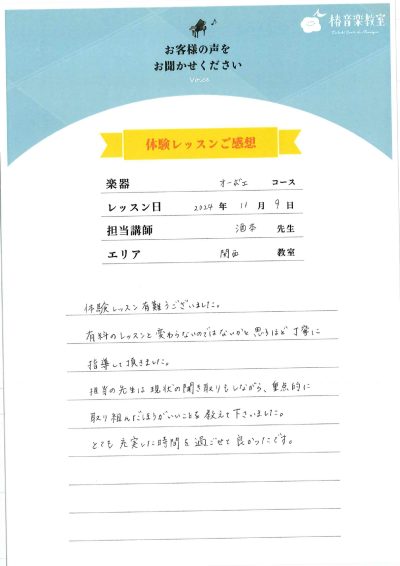 椿音楽教室
お客様の声を
お聞かせください
Voice
体験レッスンご感想
楽器 オーボエ コース
レッスン日 2024 年 11 月 9 日
担当講師 酒本 先生
エリア 関西 教室
体験レッスン有難うございました。
有料のレッスンと変わらないのではないかと思うほど丁寧に
指導して頂きました。
担当の先生は現状の聞き取りもしながら、重点的に
取り組んだほうがいいことを教えて下さいました。
とても充実した時間を過ごせて良かったです。